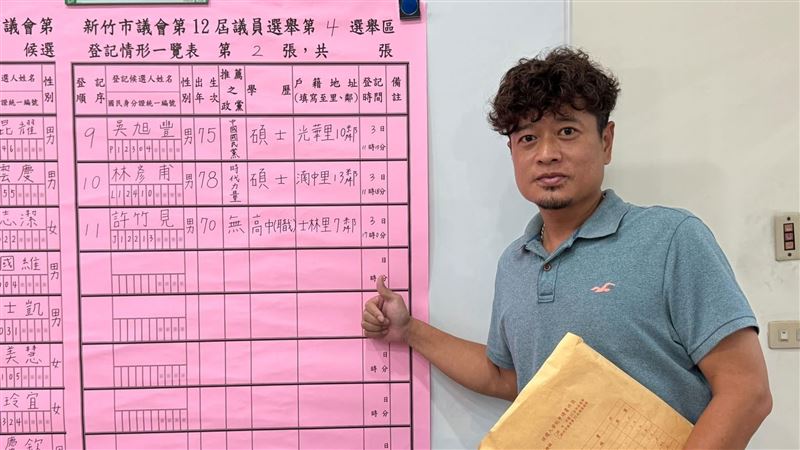 議會第
候選
選人姓名
性別
證統一編號
昆耀
男
雲慶
男
志潔
女
國維
男
士凱
男
美慧
女
玲宜
女
慶欽
新竹市議會第12屆議員選舉第4選舉區
登記情形一覽表 第2張，共 張
登記順序 登記候選人姓名 國民身分證統一編號 性別 出生年次 推薦之政黨 學歷 戶籍地址(填寫至里、鄰) 登記時間 備註
9 吳旭豐 男 75 中國國民黨 碩士 光華里10鄰 3日
P12304
10 林彥甫 男 78 時代力量 碩士 湳中里13鄰 3日
L12410
11 許竹見 男 70 無 高中(職) 士林里7鄰 3日
J12213
日
時 分
日
時 分
日
時 分
日
時 分